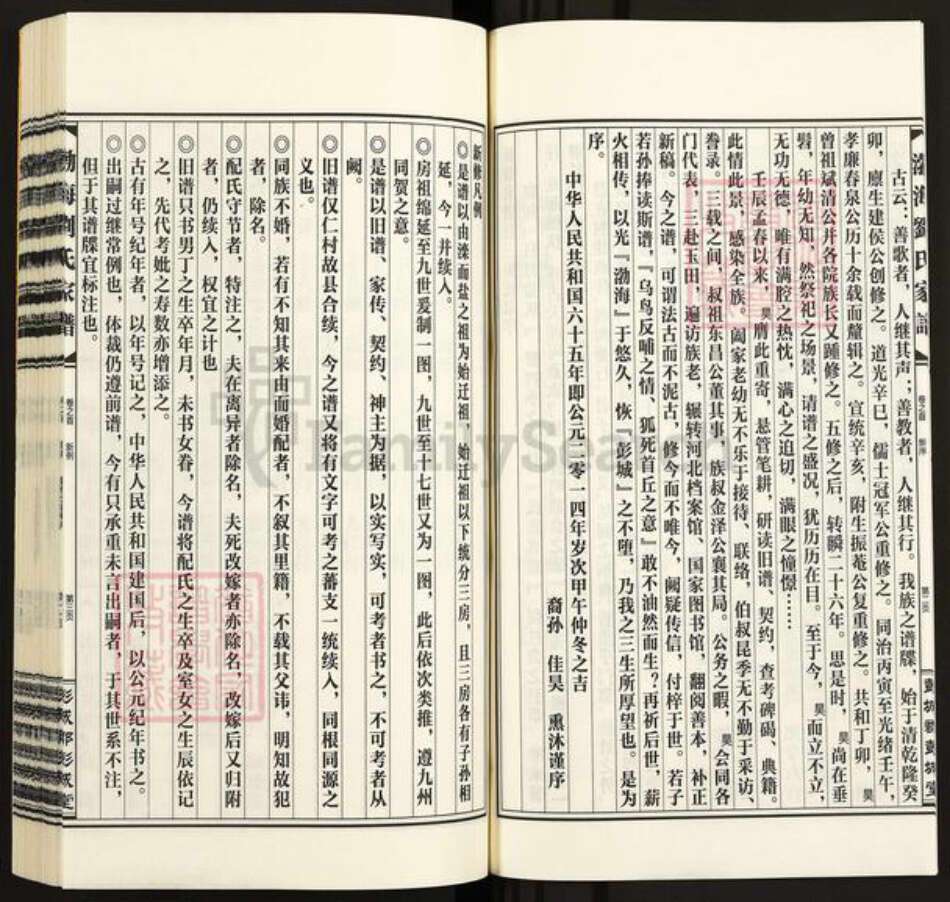 渤海劉氏家譜
卷之首 新序
第二页
彭城郡彭城堂
古云：善歌者，人继其声；善教者，人继其行。我族之谱牒，始于清乾隆癸
卯，廪生建侯公创修之。道光辛巳，儒士冠军公重修之。同治丙寅至光绪壬午，
孝廉春泉公历十余载而釐辑之。宣统辛亥，附生振菴公复重修之。共和丁卯，昊
曾祖斌清公并各院族长又踵修之。五修之后，转瞬二十六年。思是时，昊尚在垂
髫，年幼无知，然祭祀之场景，请谱之盛况，犹历历在目。至于今，昊而立不立，
无功无德，唯有满腔之热忱，满心之迫切，满眼之憧憬……
壬辰孟春以来，昊膺此重寄，悬管笔耕，研读旧谱、契约，查考碑碣、典籍。
此情此景，感染全族。阖家老幼无不乐于接待、联络，伯叔昆季无不勤于采访、
誊录。三载之间，叔祖东昌公董其事，族叔金泽公襄其局。公务之暇，昊会同各
门代表，三赴玉田，遍访族老，辗转河北档案馆、国家图书馆，翻阅善本，补正
新稿。今之谱，可谓法古而不泥古，修今而不唯今，阙疑传信，付梓于世。若子
若孙捧读斯谱，『乌鸟反哺之情、狐死首丘之意』敢不油然而生？再祈后世，薪
火相传，以光『渤海』于悠久，恢『彭城』之不堕，乃我之三生所厚望也。是为
序。
中华人民共和国六十五年即公元二零一四年岁次甲午仲冬之吉
裔孙 佳昊 熏沐谨序
新修凡例
◎是谱以由滦而盐之祖为始迁祖，始迁祖以下统分三房，且三房各有子孙相
延，今一并续入。
◎房祖绵延至九世爰制一图，九世至十七世又为一图，此后依次类推，遵九州
同贺之意。
◎是谱以旧谱、家传、契约、神主为据，以实写实，可考者书之，不可考者从
阙。
◎旧谱仅仁村故县合续，今之谱又将有文字可考之蕃支一统续入，同根同源之
义也。
◎同族不婚，若有不知其来由而婚配者，不叙其里籍，不载其父讳，明知故犯
者，除名。
◎配氏守节者，特注之，夫在离异者除名，夫死改嫁者亦除名，改嫁后又归附
者，仍续入，权宜之计也
◎旧谱只书男丁之生卒年月，未书女眷，今谱将配氏之生卒及室女之生辰依记
之，先代考妣之寿数亦增添之。
◎古有年号纪年者，以年号记之，中华人民共和国建国后，以公元纪年书之。
◎出嗣过继常例也，体裁仍遵前谱，今有只承重未言出嗣者，于其世系不注，
但于其谱牒宜标注也。
渤海劉氏家譜
卷之首 新例
第三页
彭城郡彭城堂
FamilySearch